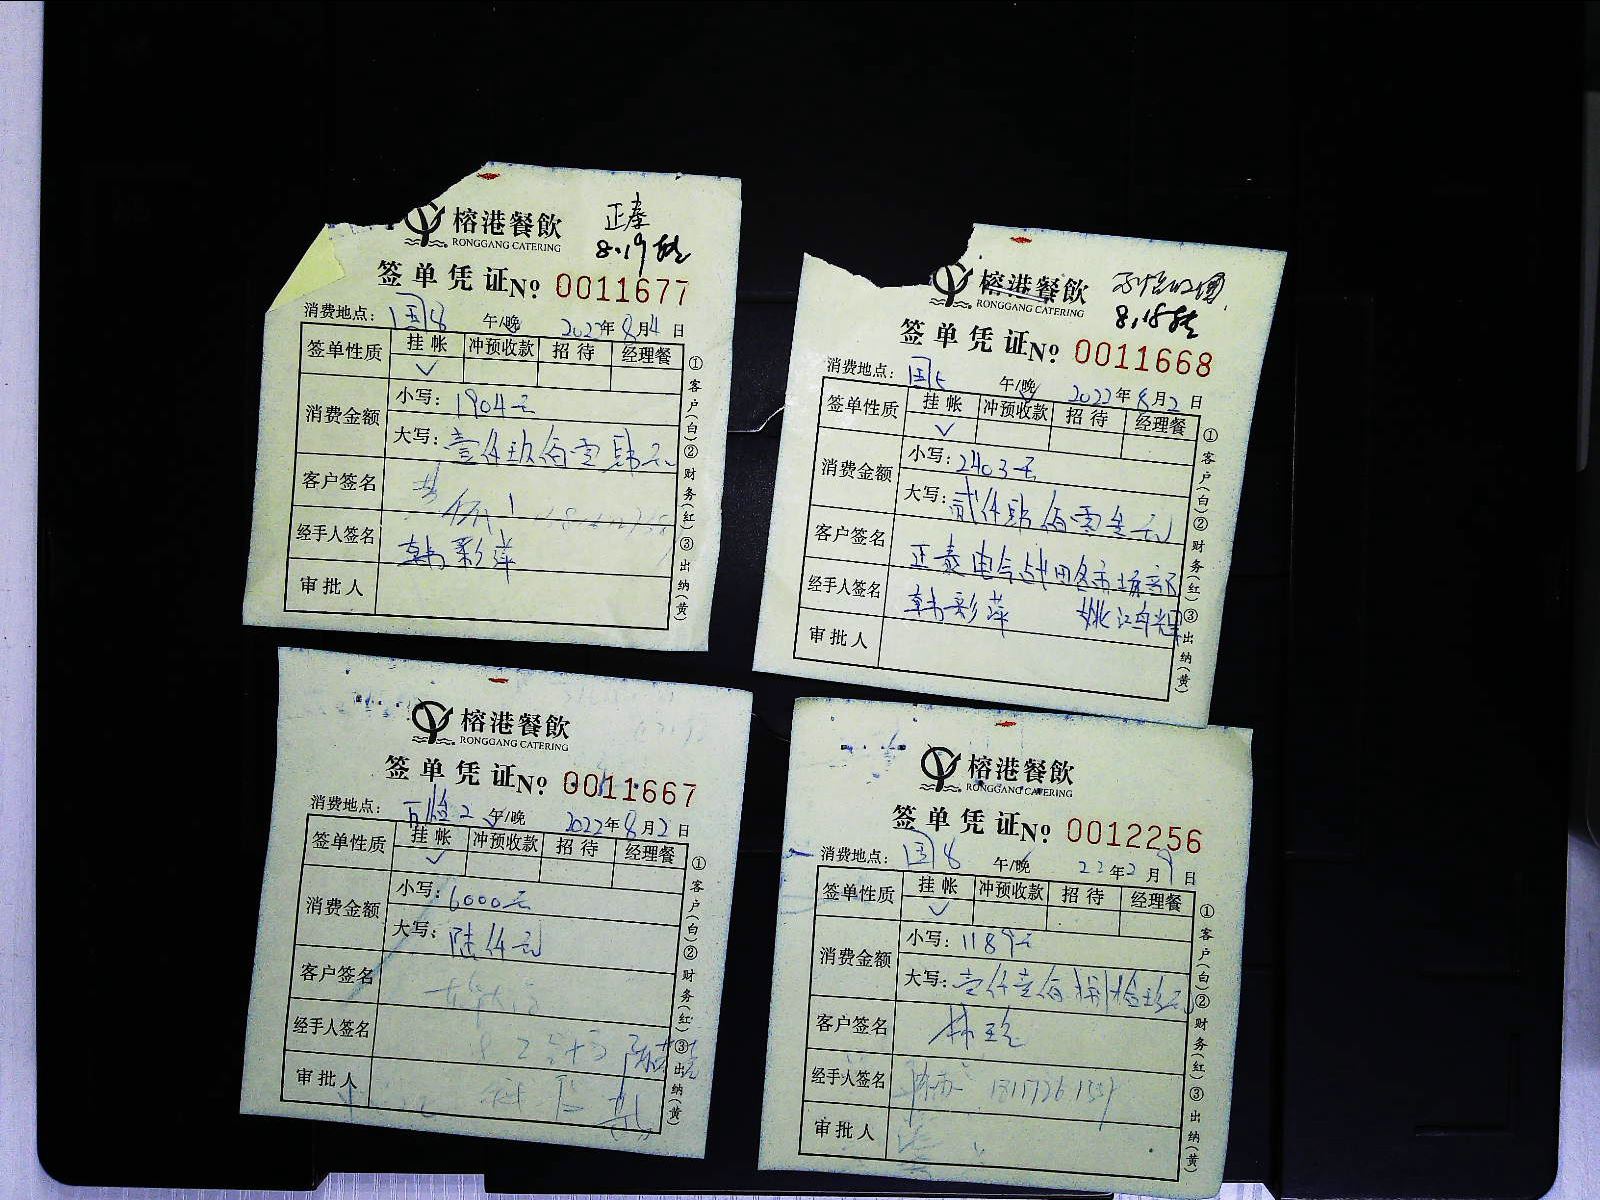 榕港餐飲
正泰
RONGGANG CATERING
8.19
签单凭证No 0011677
消费地点: 国8 午/晚 2022年8月4日
签单性质 挂帐 冲预收款 招待 经理餐
✓
消费金额 小写: 1904元
大写: 壹仟玖佰零肆元
客户签名
经手人签名 韩彩萍
审批人
①客户(白)②财务(红)③出纳(黄)
榕港餐飲
RONGGANG CATERING
8.18
签单凭证No 0011668
消费地点: 国5 午/晚 2022年8月2日
签单性质 挂帐 冲预收款 招待 经理餐
✓
消费金额 小写: 2403元
大写: 贰仟肆佰零叁元
客户签名 正泰电气
经手人签名 韩彩萍 姚鸿辉
审批人
①客户(白)②财务(红)③出纳(黄)
榕港餐飲
RONGGANG CATERING
签单凭证No 0011667
消费地点: 2 午/晚 2022年8月2日
签单性质 挂帐 冲预收款 招待 经理餐
✓
消费金额 小写: 6000元
大写: 陆仟元
客户签名
经手人签名
审批人
①客户(白)②财务(红)③出纳(黄)
榕港餐飲
RONGGANG CATERING
签单凭证No 0012256
消费地点: 国8 午/晚 22年2月9日
签单性质 挂帐 冲预收款 招待 经理餐
✓
消费金额 小写: 1189元
大写: 壹仟壹佰捌拾玖元
客户签名
经手人签名
审批人
①客户(白)②财务(红)③出纳(黄)